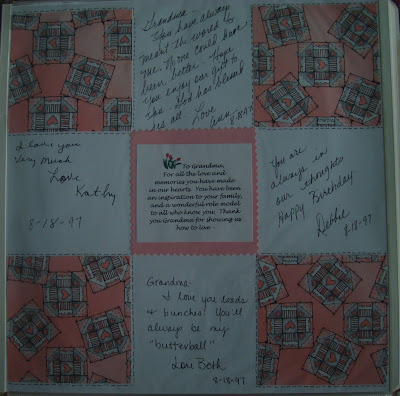 Grandma
You have always
meant the world to
me. No one could have
been better - hope
you enjoy our gift to
God has blessed
us all. Love
8-18-97
I love you
very much
Love
Kathy
8-18-97
To Grandma,
For all the love and
memories you have made
in our hearts. You have been
an inspiration to your family,
and a wonderful role model
to all who know you. Thank
you Grandma for showing us
how to live -
You are
always in
our thoughts
Happy Birthday
Debbie
8-18-97
Grandma-
I love you loads
+ bunches! You'll
always be my
"butterball"
Lori Beth
8-18-97